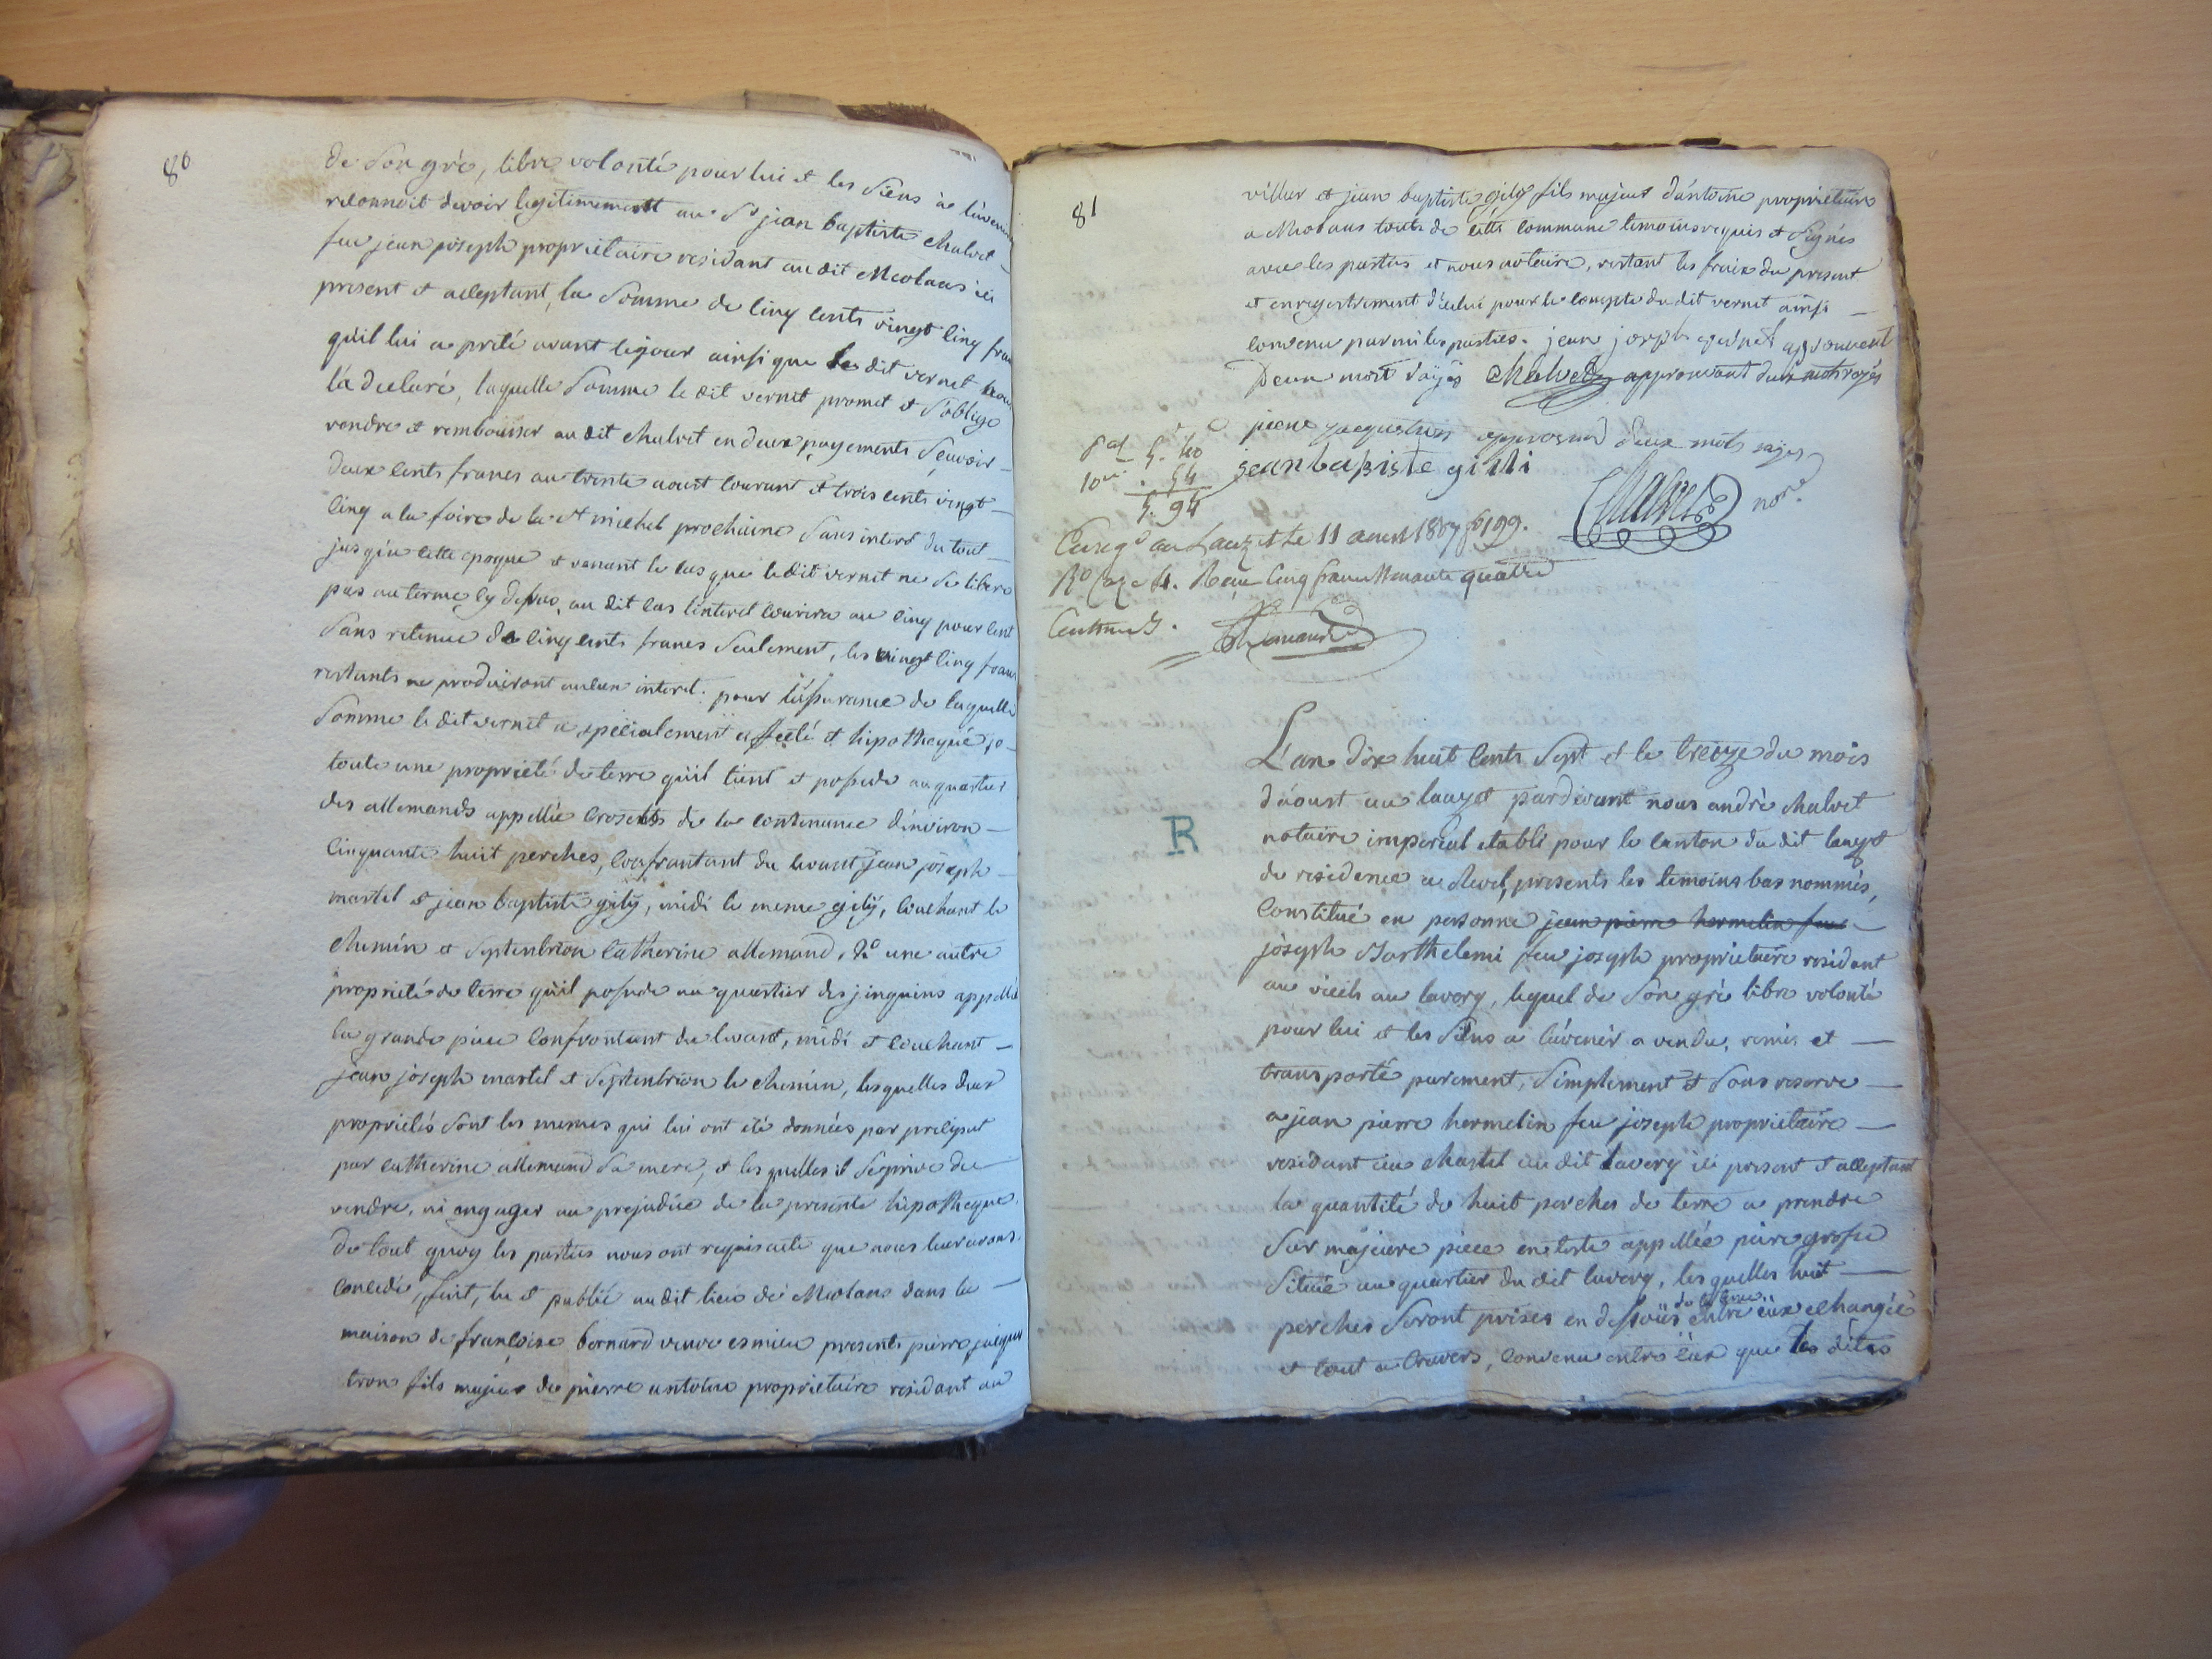 80
de son gré, libre volonté pour lui et les siens à l'avenir
reconnoit devoir legitimement au Sr jean baptiste chalvet
feu jean joseph proprietaire residant au dit Meolans ici
present et acceptant, la somme de cinq cents vingt cinq francs
qu'il lui a prêté avant ce jour ainsi que le dit vernet nous
l'a declaré, laquelle somme le dit vernet promet et s'oblige
rendre et rembourser au dit chalvet en deux payements sçavoir
deux cents francs au trente aoust courant et trois cents vingt
cinq a la foire de la st michel prochaine sans interet du tout
jusqu'a cette epoque et venant le cas que le dit vernet ne se libere
pas au terme cy dessus, au dit cas l'interet courrira au cinq pour cent
sans retenue de cinq cents francs seulement, les vingt cinq francs
restants ne produiront aucun interet. pour l'assurance de laquelle
somme le dit vernet a specialement affecté et hipothequé 1o
toute une propriété de terre qu'il tient et possede au quartier
des allemands appellée crosents de la contenance d'environ
cinquante huit perches, confrontant du levant jean joseph
martel et jean baptiste gily, midi le meme gily, couchant le
chemin et septentrion catherine allemand, 2o une autre
propriété de terre qu'il possede au quartier des appellée
la grande piece confrontant du levant, midi et couchant
jean joseph martel et septentrion le chemin, lesquelles deux
propriétés sont les memes qui lui ont été données par preciput
par catherine allemand sa mere, et lesquelles il se prive de
vendre, ni engager au prejudice de la presente hipotheque.
De tout quoy les parties nous ont requis acte que nous leur avons
concedé, fait, lu et publié au dit lieu de Meolans dans la
maison de françoise bernard veuve esmieu presents pierre jacques
tron fils majeur de pierre antoine proprietaire residant au
81
villar et jean baptiste gily fils majeur d'antoine proprietaire
a Meolans touts de cette commune temoins requis et signés
avec les parties et nous notaire, restant les fraix du present
et enregistrement d'icelui pour le compte du dit vernet ainsi
convenu parmi les parties. jean joseph approuvent
Deux mots rayés chalvet approuvant deux mots rayés
piere jacques tron approuvant deux mots rayés
jean batiste gilli
Chalvet nore
5. 40
10me . 54
5. 94
Enregé au Lauzet le 11 aoust 1807 fo 199.
Ro Case 4. Reçu Cinq francs nonante quatre
Centimes.
R
L'an dix huit cents sept et le treize du mois
d'aoust au lauzet pardevant nous andré chalvet
notaire imperial etabli pour le canton du dit lauzet
de residence a Revel, presents les temoins bas nommés,
constitué en personne jean pierre hermelin feu
joseph Barthelemi feu joseph proprietaire residant
au vieils au laverq, lequel de son gré libre volonté
pour lui et les siens a l'avenir a vendu, remis et
transporté purement, simplement et sans reserve
a jean pierre hermelin feu joseph proprietaire
residant au chastel au dit Laverq ici present et acceptant
la quantité de huit perches de terre a prendre
sur majeure piece en reste appellée piere grosse
située au quartier du dit laverq, lesquelles huit
perches seront prises en dessous de la terre entre eux echangée
et tout a travers, convenu entre eux que les dites